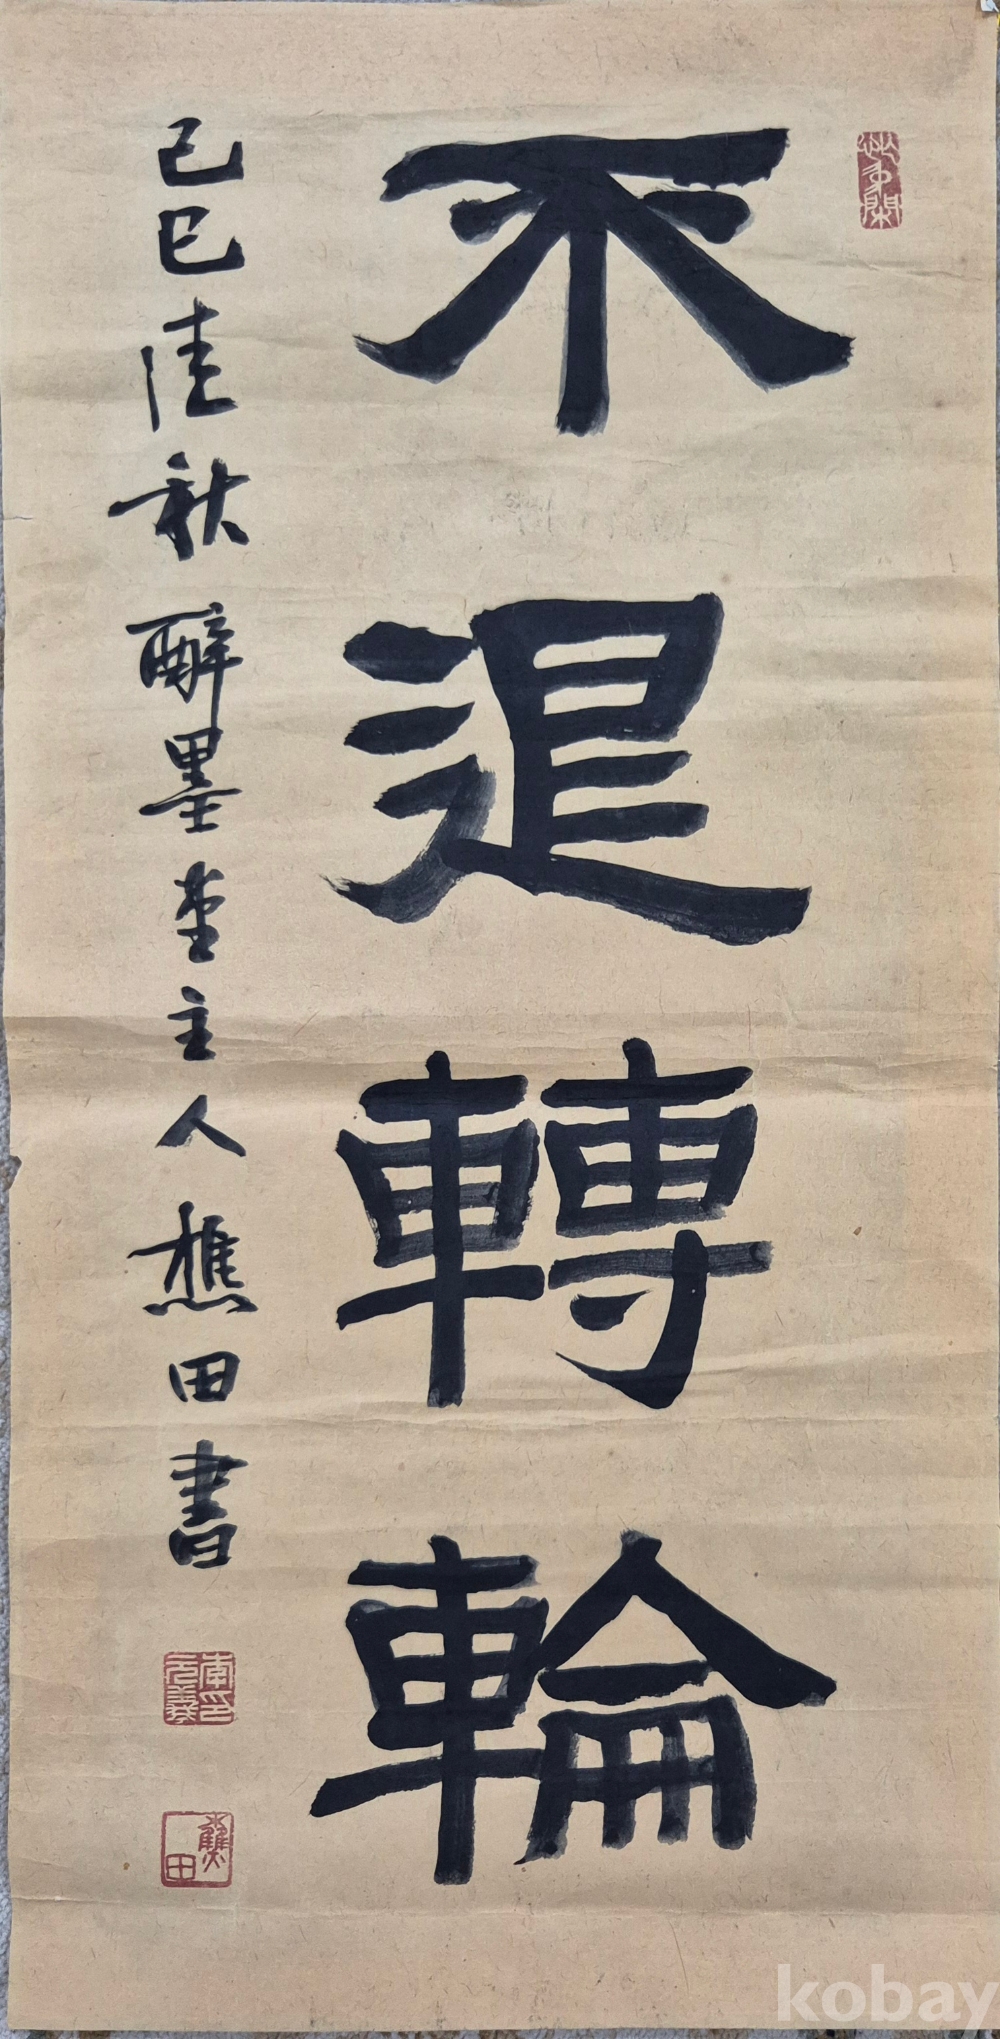 不退轉輪
己巳佳秋醉墨堂主人樵田書
樵田
kobay